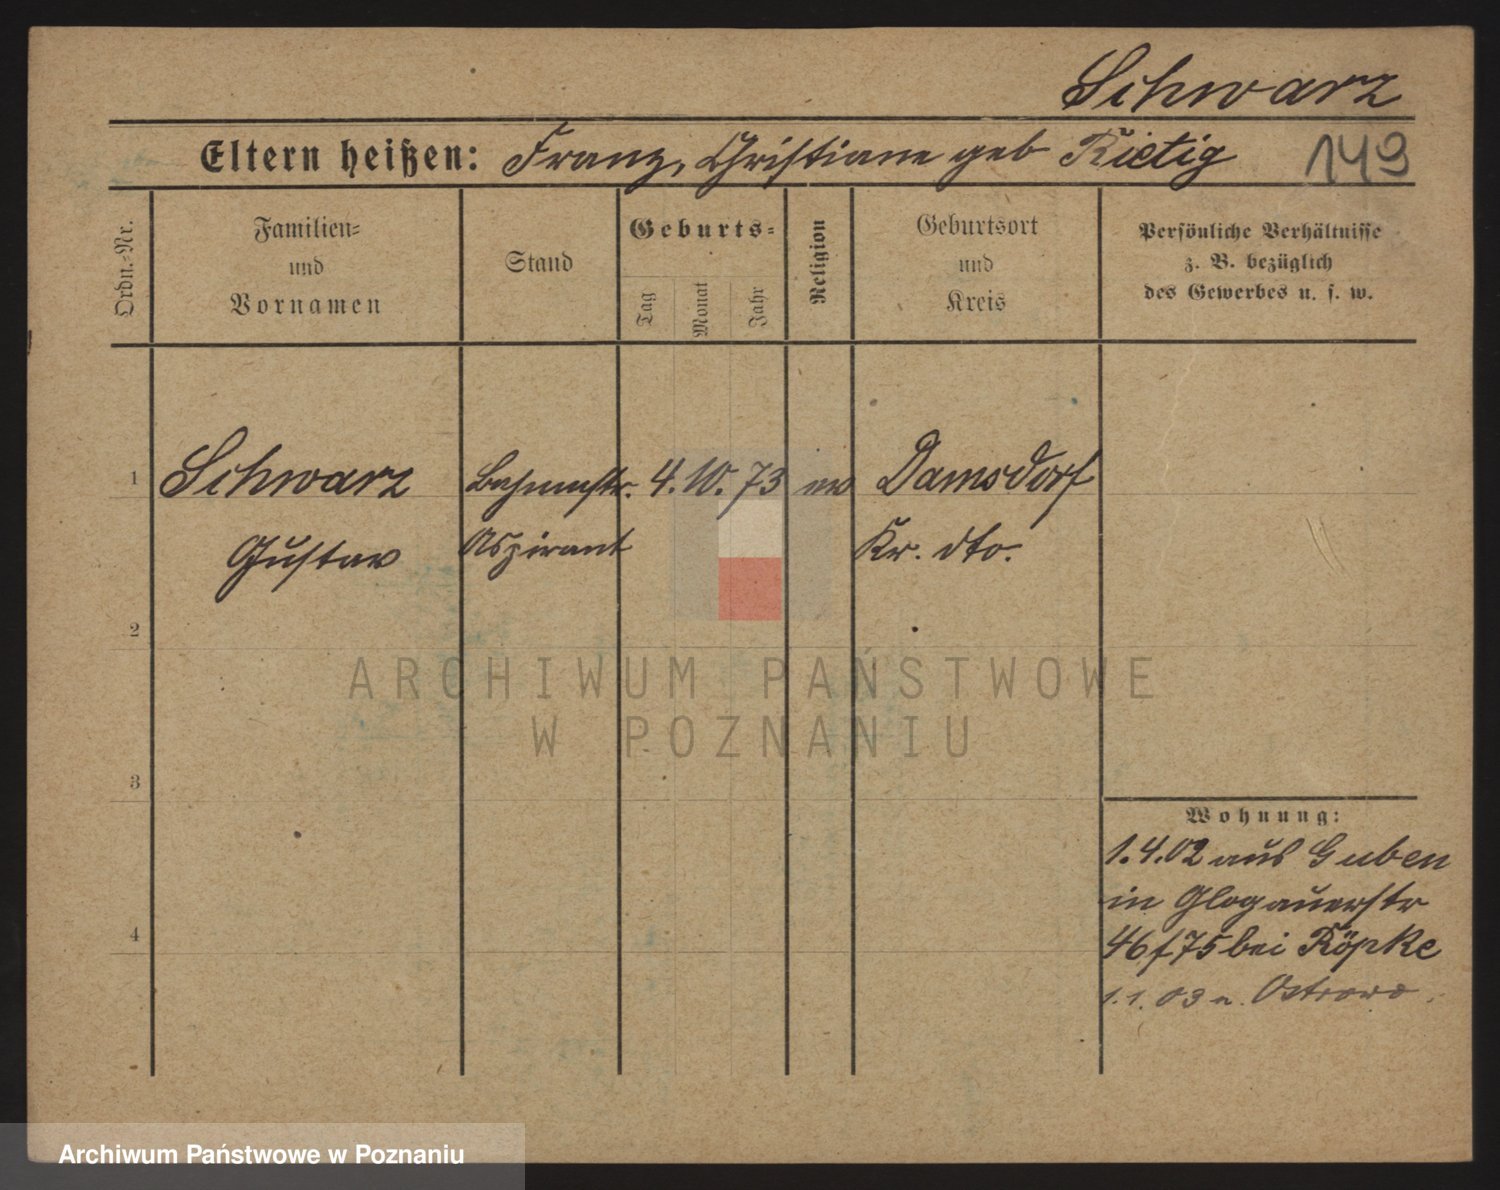 Schwarz
Eltern heißen: Franz, Christiane geb Rietig 149
Ordn.-Nr.
Familien- und Vornamen
Stand
Geburts-
Tag
Monat
Jahr
Religion
Geburtsort und Kreis
Persönliche Verhältnisse
z. B. bezüglich
des Gewerbes u. s. w.
1 Schwarz Bahnmstr. 4. 10. 73 ev Damsdorf
Gustav Aspirant Kr. dto.
2
ARCHIWUM PAŃSTWOWE
W POZNANIU
3
Wohnung:
1.4.02 aus Guben
in Glogauerstr
4 46/75 bei Röpke
1.1.03 n. Ostrowo.
Archiwum Państwowe w Poznaniu